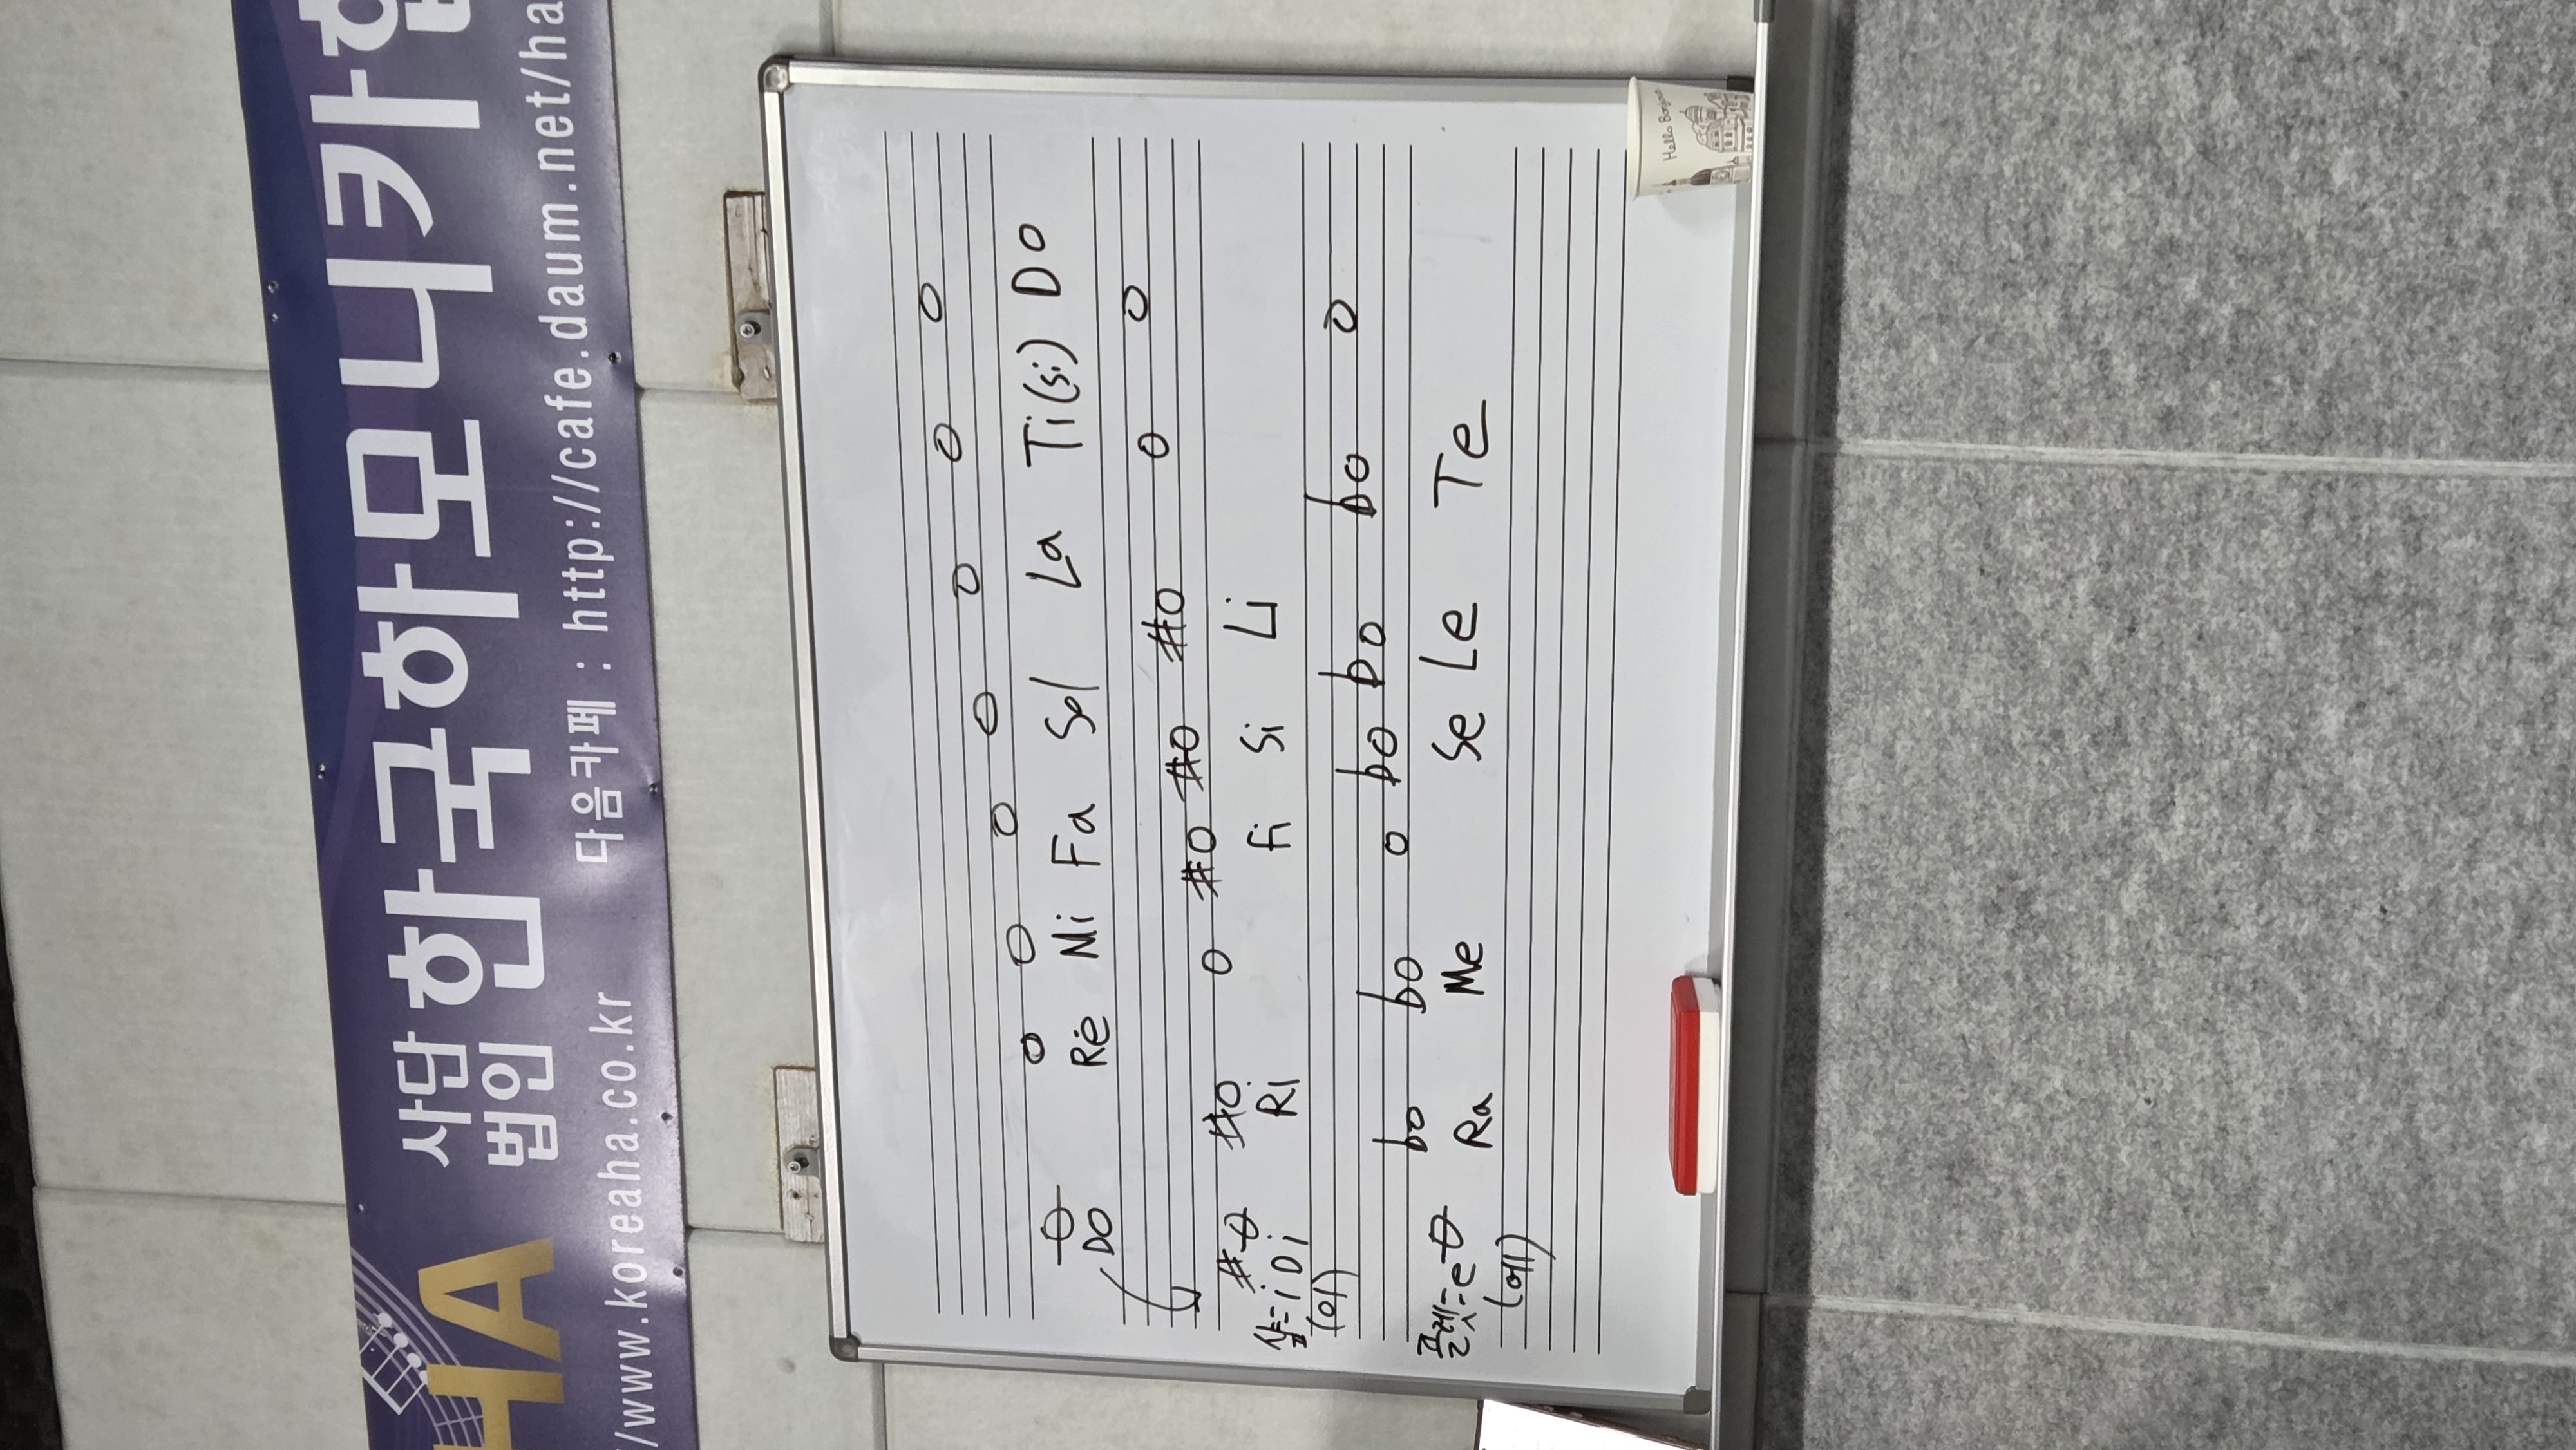 사단
법인 한국하모니카협
HA
/www.koreaha.co.kr 다음카페 : http://cafe.daum.net/ha
DO Re Mi Fa Sol La Ti(si) Do
샾=i Di Ri Fi Si Li
(이)
플렛=e Ra Me Se Le Te
(에)
Hello